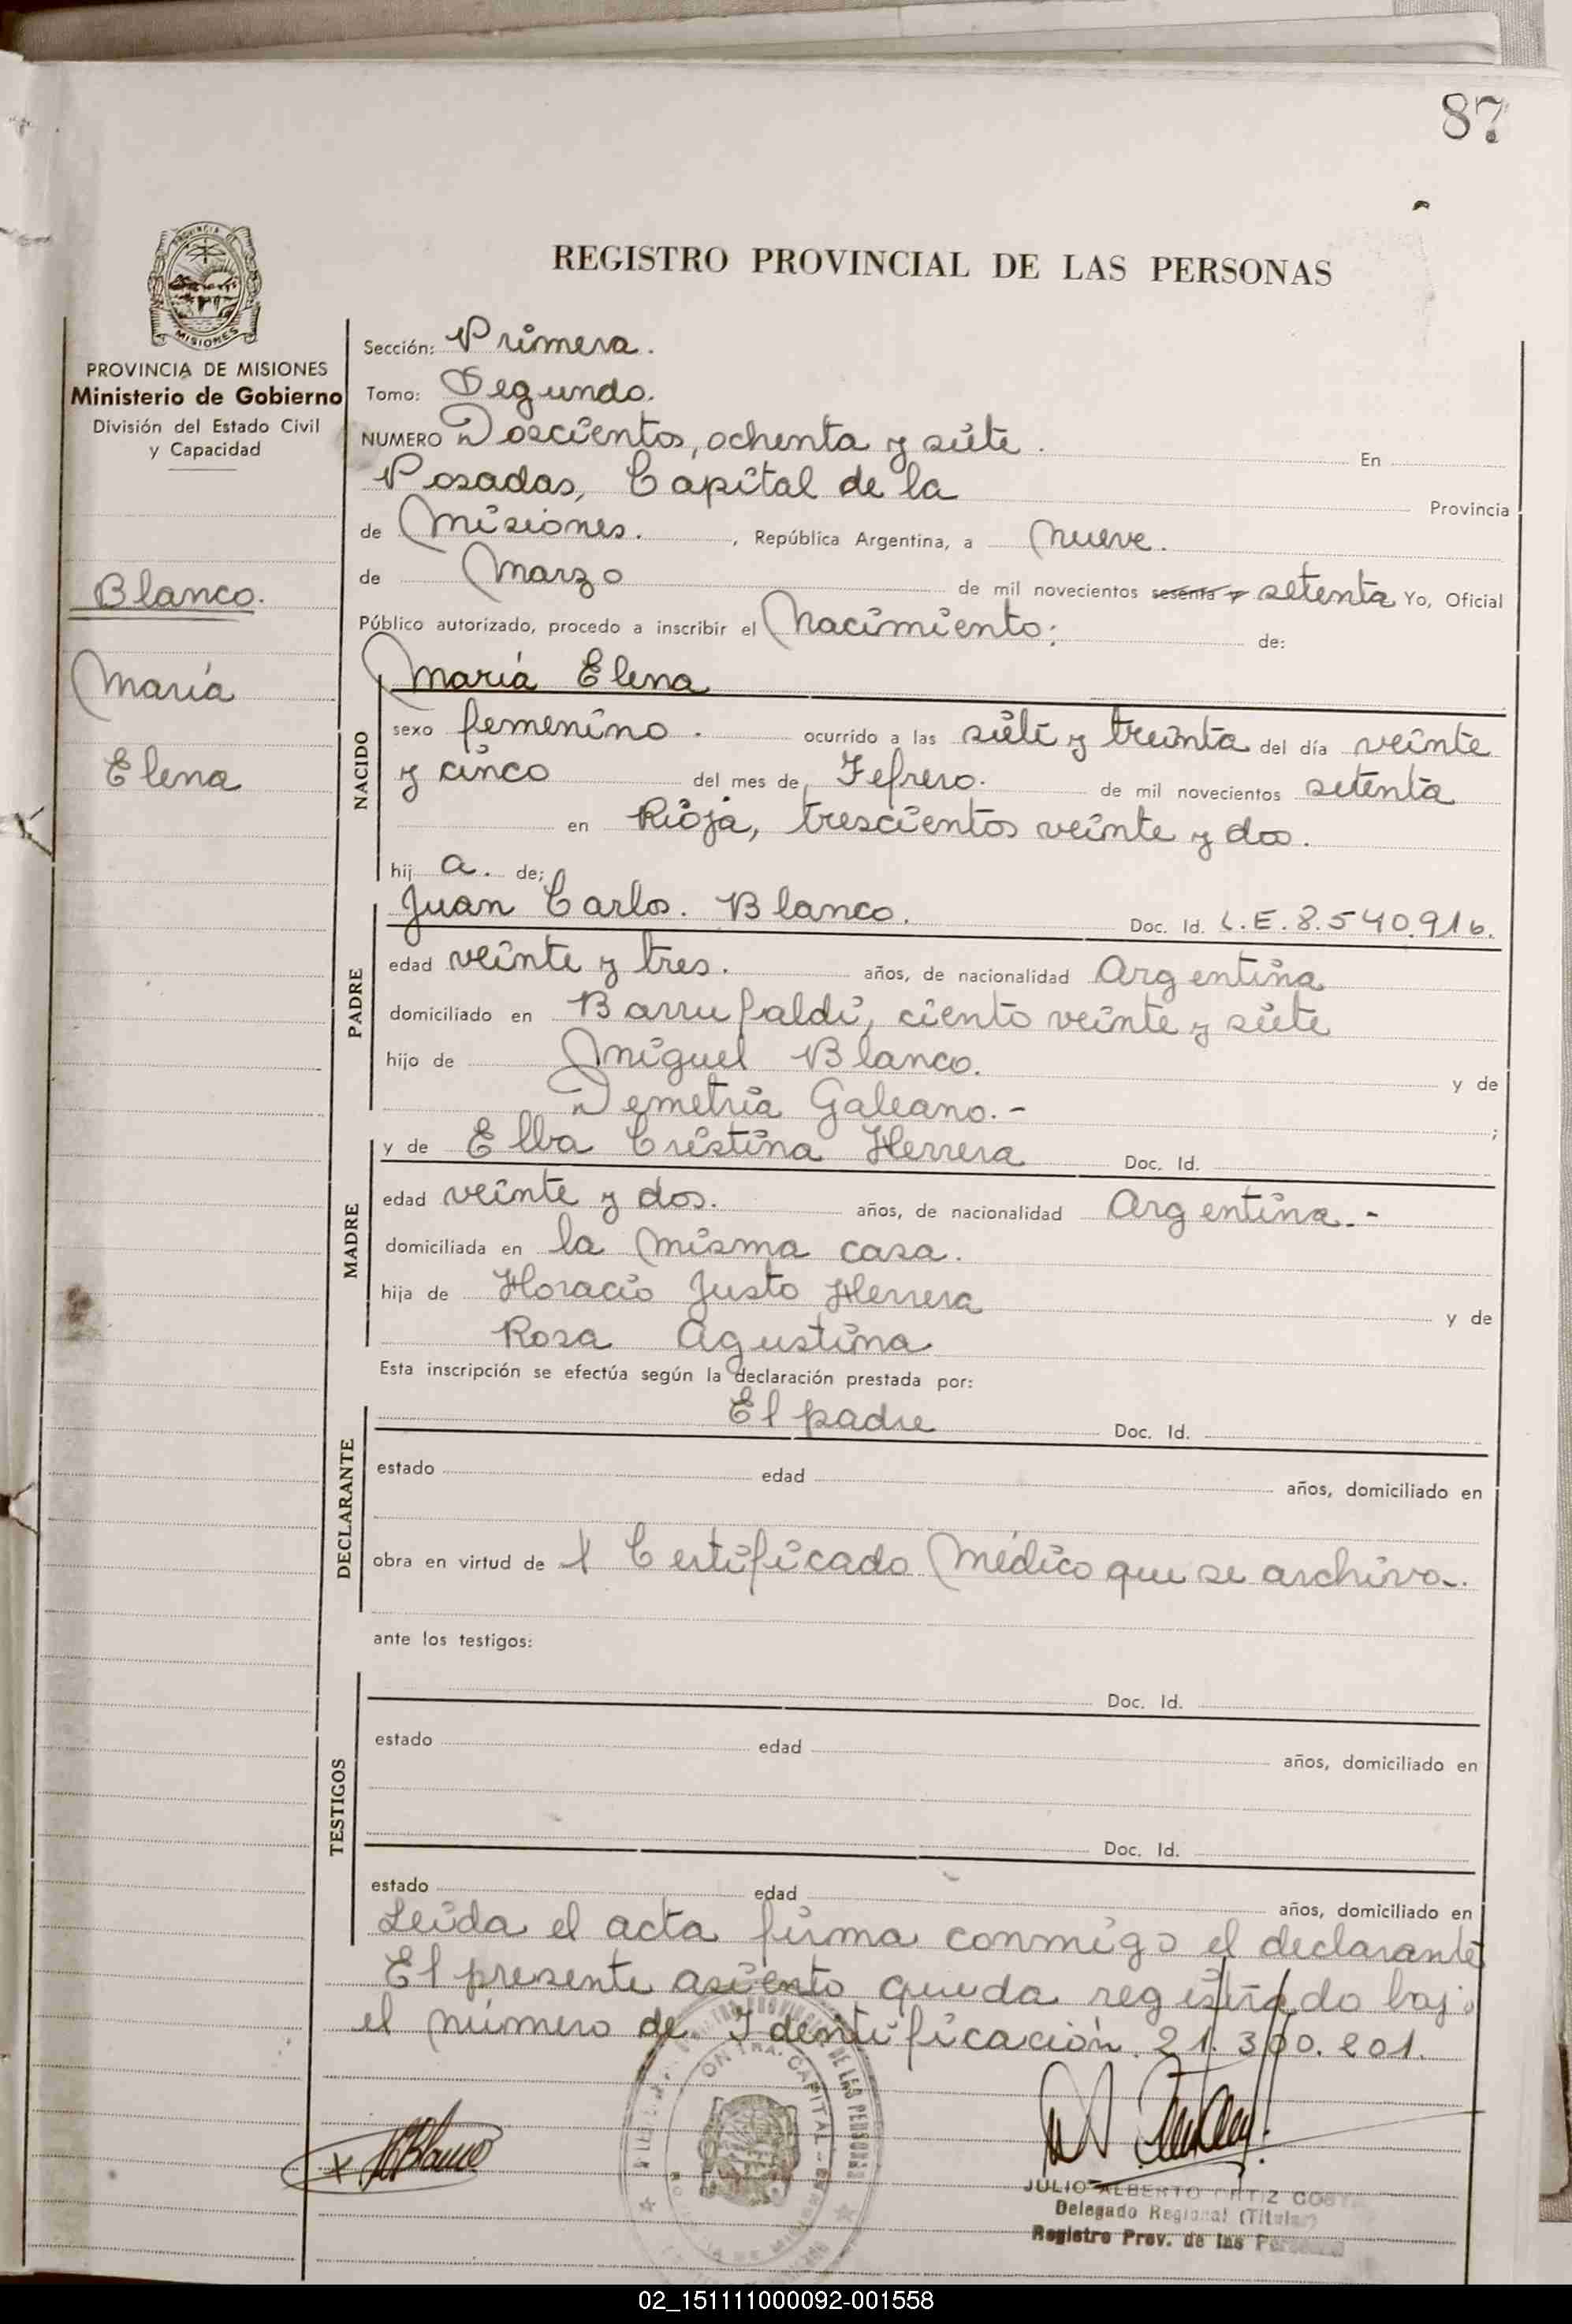 87
REGISTRO PROVINCIAL DE LAS PERSONAS
MISIONES
PROVINCIA DE MISIONES
Ministerio de Gobierno
División del Estado Civil
y Capacidad
Blanco.
María
Elena
Sección: Primera.
Tomo: Segundo.
NUMERO Doscientos, ochenta y siete. En
Posadas, Capital de la Provincia
de Misiones. , República Argentina, a nueve.
de Marzo de mil novecientos sesenta y setenta Yo, Oficial
Público autorizado, procedo a inscribir el Nacimiento: de:
María Elena
NACIDO
sexo femenino. ocurrido a las siete y treinta del día veinte
y cinco del mes de Fefrero. de mil novecientos setenta
en Rioja, trescientos veinte y dos.
hij a. de;
Juan Carlos. Blanco. Doc. Id. L.E.8.540.916.
PADRE
edad veinte y tres. años, de nacionalidad Argentina
domiciliado en Barrufaldi, ciento veinte y siete
hijo de Miguel Blanco. y de
Demetria Galeano.- ;
y de Elba Cristina Herrera Doc. Id.
MADRE
edad veinte y dos. años, de nacionalidad Argentina.-
domiciliada en la misma casa.
hija de Horacio Justo Herrera y de
Rosa Agustina
Esta inscripción se efectúa según la declaración prestada por:
El padre Doc. Id.
DECLARANTE
estado edad años, domiciliado en
obra en virtud de 1 Certificado Médico que se archiva.
ante los testigos:
Doc. Id.
TESTIGOS
estado edad años, domiciliado en
Doc. Id.
estado edad años, domiciliado en
Leída el acta firma conmigo el declarante
El presente asiento queda registrado bajo
el número de Identificación. 21.300.201.
Blanco
CAPITAL
DE LAS PERSONAS
JULIO ALBERTO ORTIZ
Delegado Regional (Titular)
Registro Prov. de las Personas
02_151111000092-001558